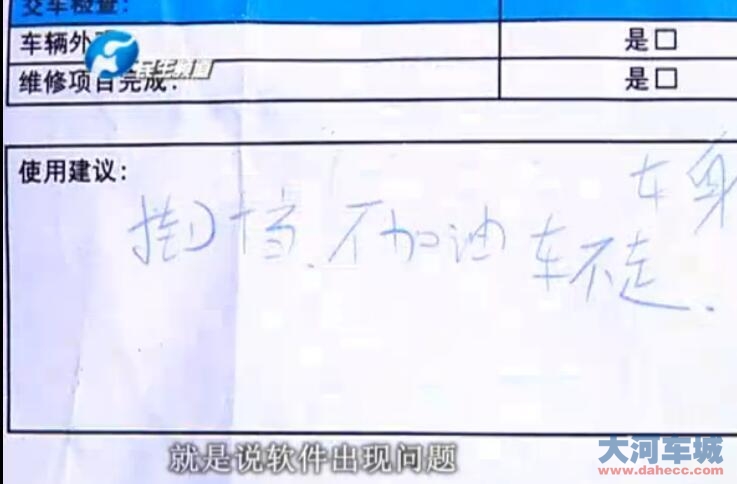 交车检查:
车辆外
是□
民生频道
维修项目完成:
是□
使用建议:
车身
挂D档.不加油 车不走.
就是说软件出现问题
大河车城
www.dahecc.com